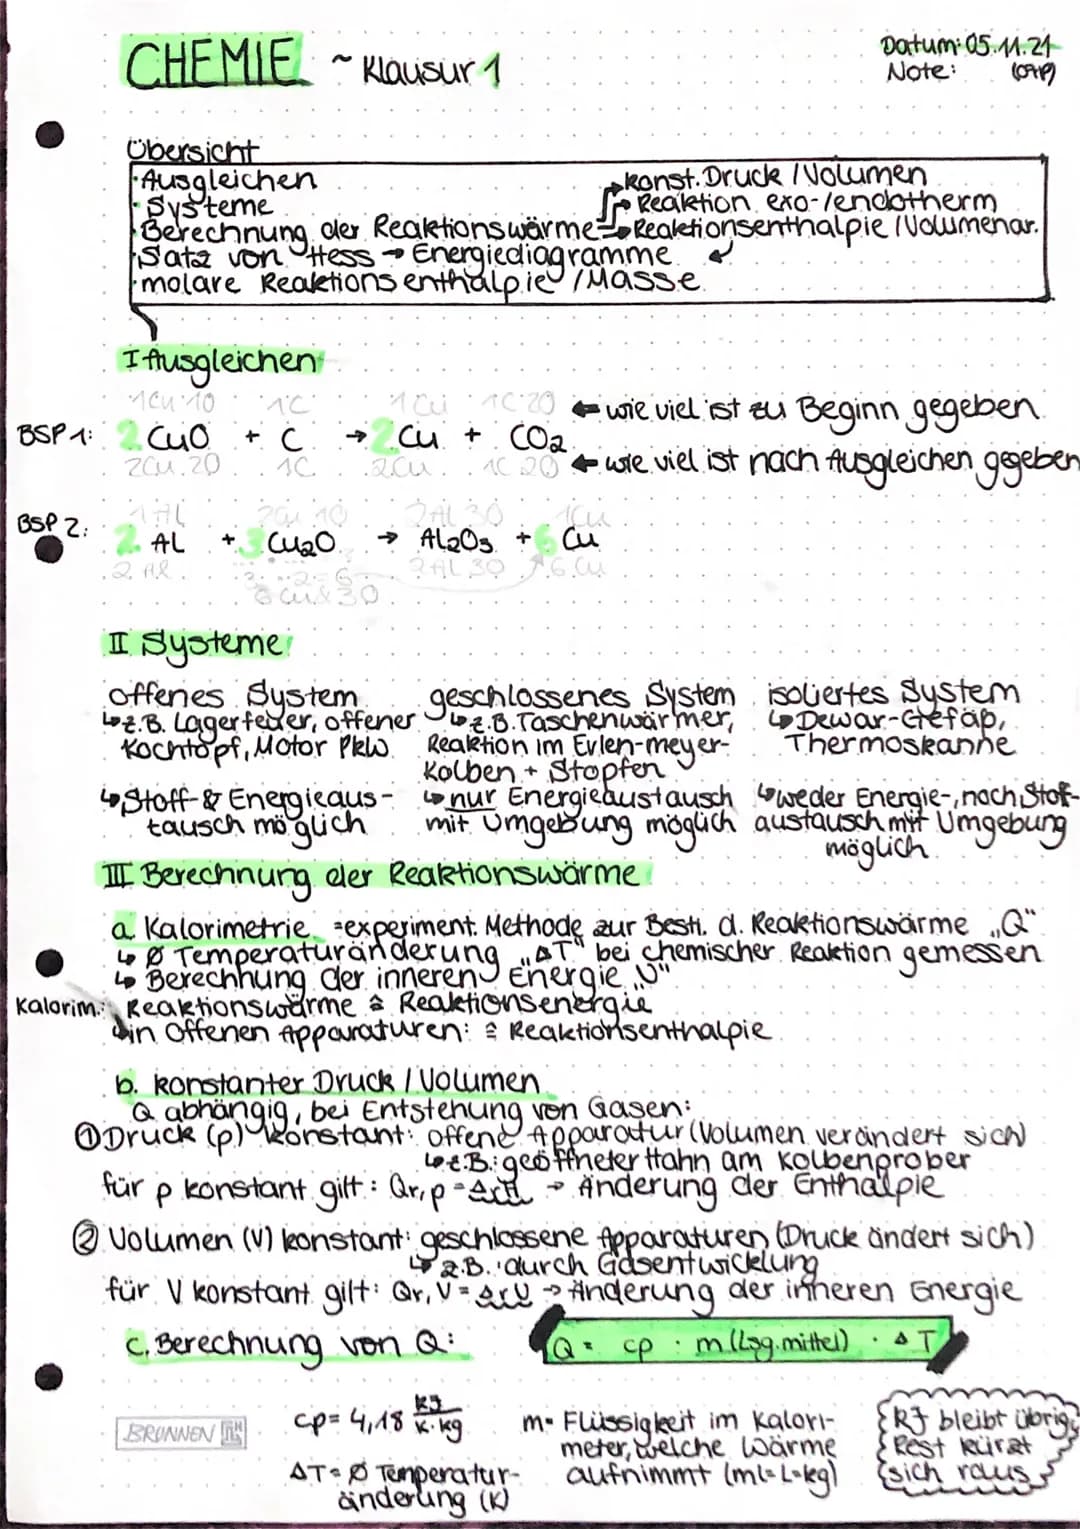 CHEMIE ~ Klausur 1
Datum: 05.11.21
Note: (09P)
Übersicht
·Ausgleichen
·Systeme
·Berechnung der Reaktionswärme
→konst. Druck / Volumen
→Reaktion exo-/endotherm
→Reaktionsenthalpie / Volumenar.
·Satz von Hess → Energiediagramme
·molare Reaktionsenthalpie / Masse
I Ausgleichen
1Cu 1O 1C 1Cu 1C 2O ← wie viel ist zu Beginn gegeben
BSP 1: 2 CuO + C → 2 Cu + CO2
2Cu 2O 1C 2Cu 1C 2O ← wie viel ist nach Ausgleichen gegeben
1 Al 2Cu 1O 2Al 3O 1Cu
BSP 2: 2 AL + 3 Cu2O → Al2O3 + 6 Cu
2 Al 3 · 2 = 6 2Al 3O 6 Cu
6 Cu & 3O
II Systeme
offenes System
↳z.B. Lagerfeuer, offener
Kochtopf, Motor Pkw
↳Stoff- & Energieaus-
tausch möglich
geschlossenes System
↳z.B. Taschenwärmer,
Reaktion im Erlen-meyer-
Kolben + Stopfen
↳nur Energieaustausch
mit Umgebung möglich
isoliertes System
↳Dewar-Gefäß,
Thermoskanne
↳weder Energie-, noch Stoff-
austausch mit Umgebung
möglich
III Berechnung der Reaktionswärme
a. Kalorimetrie =experiment. Methode zur Besti. d. Reaktionswärme „Q"
↳ Ø Temperaturänderung „ΔT" bei chemischer Reaktion gemessen
↳ Berechnung der inneren Energie „U"
Kalorim.: Reaktionswärme ≙ Reaktionsenergie
↳in offenen Apparaturen: ≙ Reaktionsenthalpie
b. konstanter Druck / Volumen
Q abhängig, bei Entstehung von Gasen:
① Druck (p) konstant: offene Apparatur (Volumen verändert sich)
↳z.B.: geöffneter Hahn am Kolbenprober
für p konstant gilt: Qr,p = ΔrH → Änderung der Enthalpie
② Volumen (V) konstant: geschlossene Apparaturen (Druck ändert sich)
↳ z.B. durch Gasentwicklung
für V konstant gilt: Qr,V = ΔrU → Änderung der inneren Energie
c. Berechnung von Q: Q = cp · m (Lsg.mittel) · ΔT
BRUNNEN
cp = 4,18 kJ/K·kg
ΔT = Ø Temperatur-
änderung (K)
m = Flüssigkeit im Kalori-
meter, welche Wärme
aufnimmt (ml=L=kg)
KJ bleibt übrig,
Rest kürzt
sich raus